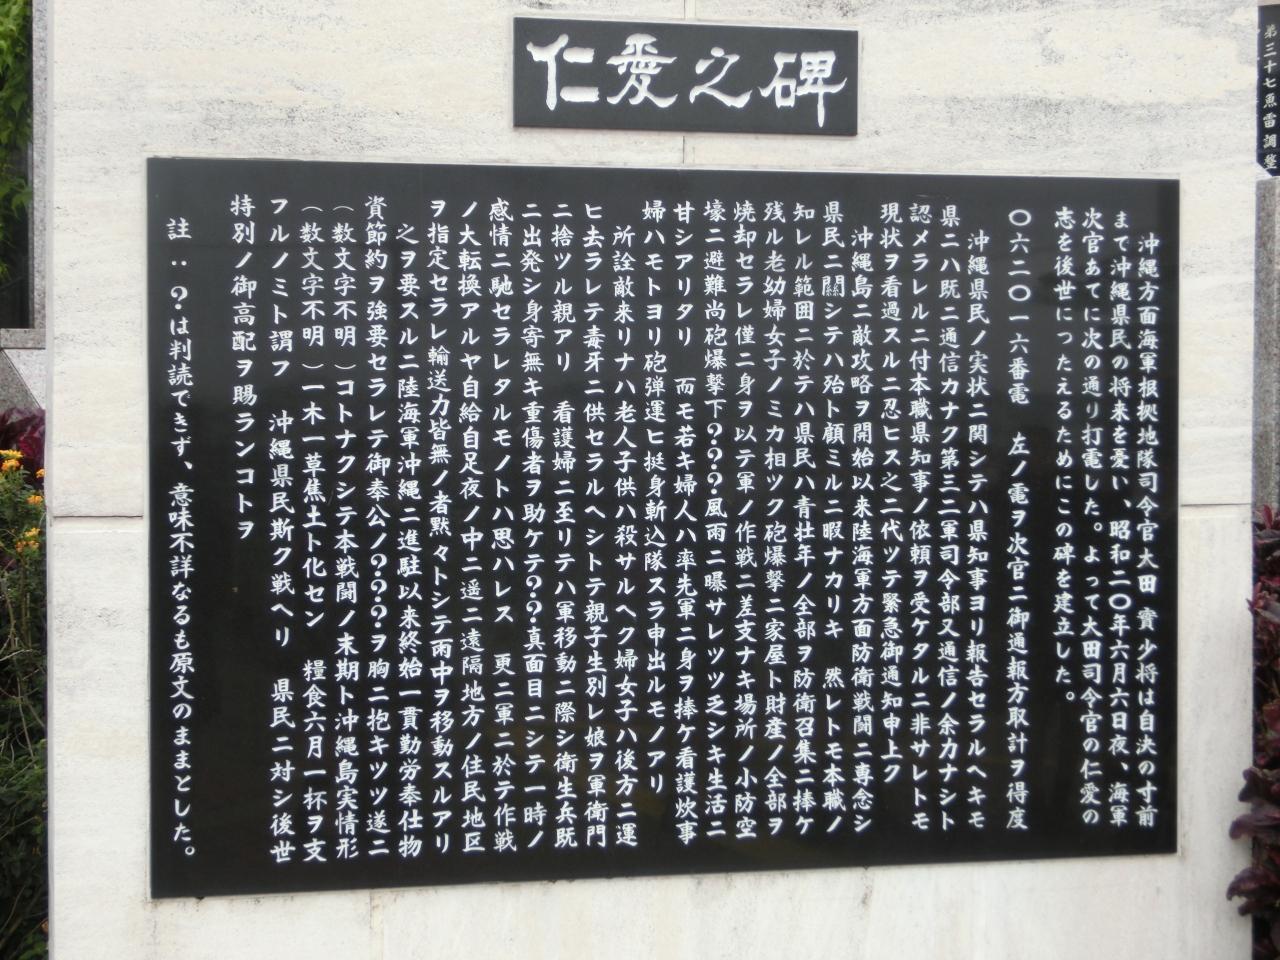 仁愛之碑
沖縄方面海軍根拠地隊司令官太田實少将は自決の寸前
まで沖縄県民の将来を憂い、昭和二〇年六月六日夜、海軍
次官あてに次の通り打電した。よって大田司令官の仁愛の
志を後世につたえるためにこの碑を建立した。
〇六二〇一六番電 左ノ電ヲ次官ニ御通報方取計ヲ得度
沖縄県民ノ実状ニ関シテハ県知事ヨリ報告セラルヘキモ
県ニハ既ニ通信力ナク第三二軍司令部又通信ノ余力ナシト
認メラレルニ付本職県知事ノ依頼ヲ受ケタルニ非サレトモ
現状ヲ看過スルニ忍ヒス之ニ代ツテ緊急御通知申上ク
沖縄島ニ敵攻略ヲ開始以来陸海軍方面防衛戦闘ニ専念シ
県民ニ關シテハ殆ト顧ミルニ暇ナカリキ 然レトモ本職ノ
知レル範囲ニ於テハ県民ハ青壮年ノ全部ヲ防衛召集ニ捧ケ
残ル老幼婦女子ノミカ相ツク砲爆撃ニ家屋ト財産ノ全部ヲ
焼却セラレ僅ニ身ヲ以テ軍ノ作戦ニ差支ナキ場所ノ小防空
壕ニ避難尚砲爆撃下???風雨ニ曝サレツツ乏シキ生活ニ
甘シアリタリ 而モ若キ婦人ハ率先軍ニ身ヲ捧ケ看護炊事
婦ハモトヨリ砲弾運ヒ挺身斬込隊スラ申出ルモノアリ
所詮敵来リナハ老人子供ハ殺サルヘク婦女子ハ後方ニ運
ヒ去ラレテ毒牙ニ供セラルヘシトテ親子生別レ娘ヲ軍衛門
ニ捨ツル親アリ 看護婦ニ至リテハ軍移動ニ際シ衛生兵既
ニ出発シ身寄無キ重傷者ヲ助ケテ???真面目ニシテ一時ノ
感情ニ馳セラレタルモノトハ思ハレス 更ニ軍ニ於テ作戦
ノ大転換アルヤ自給自足夜ノ中ニ遥ニ遠隔地方ノ住民地区
ヲ指定セラレ輸送力皆無ノ者黙々トシテ雨中ヲ移動スルアリ
之ヲ要スルニ陸海軍沖縄ニ進駐以来終始一貫勤労奉仕物
資節約ヲ強要セラレテ御奉公ノ???ヲ胸ニ抱キツツ遂ニ
(数文字不明)コトナクシテ本戦闘ノ末期ト沖縄島実情形
(数文字不明)一木一草焦土ト化セン 糧食六月一杯ヲ支
フルノミト謂フ 沖縄県民斯ク戦ヘリ 県民ニ対シ後世
特別ノ御高配ヲ賜ランコトヲ
註:?は判読できず、意味不詳なるも原文のままとした。
第三十七魚雷調整